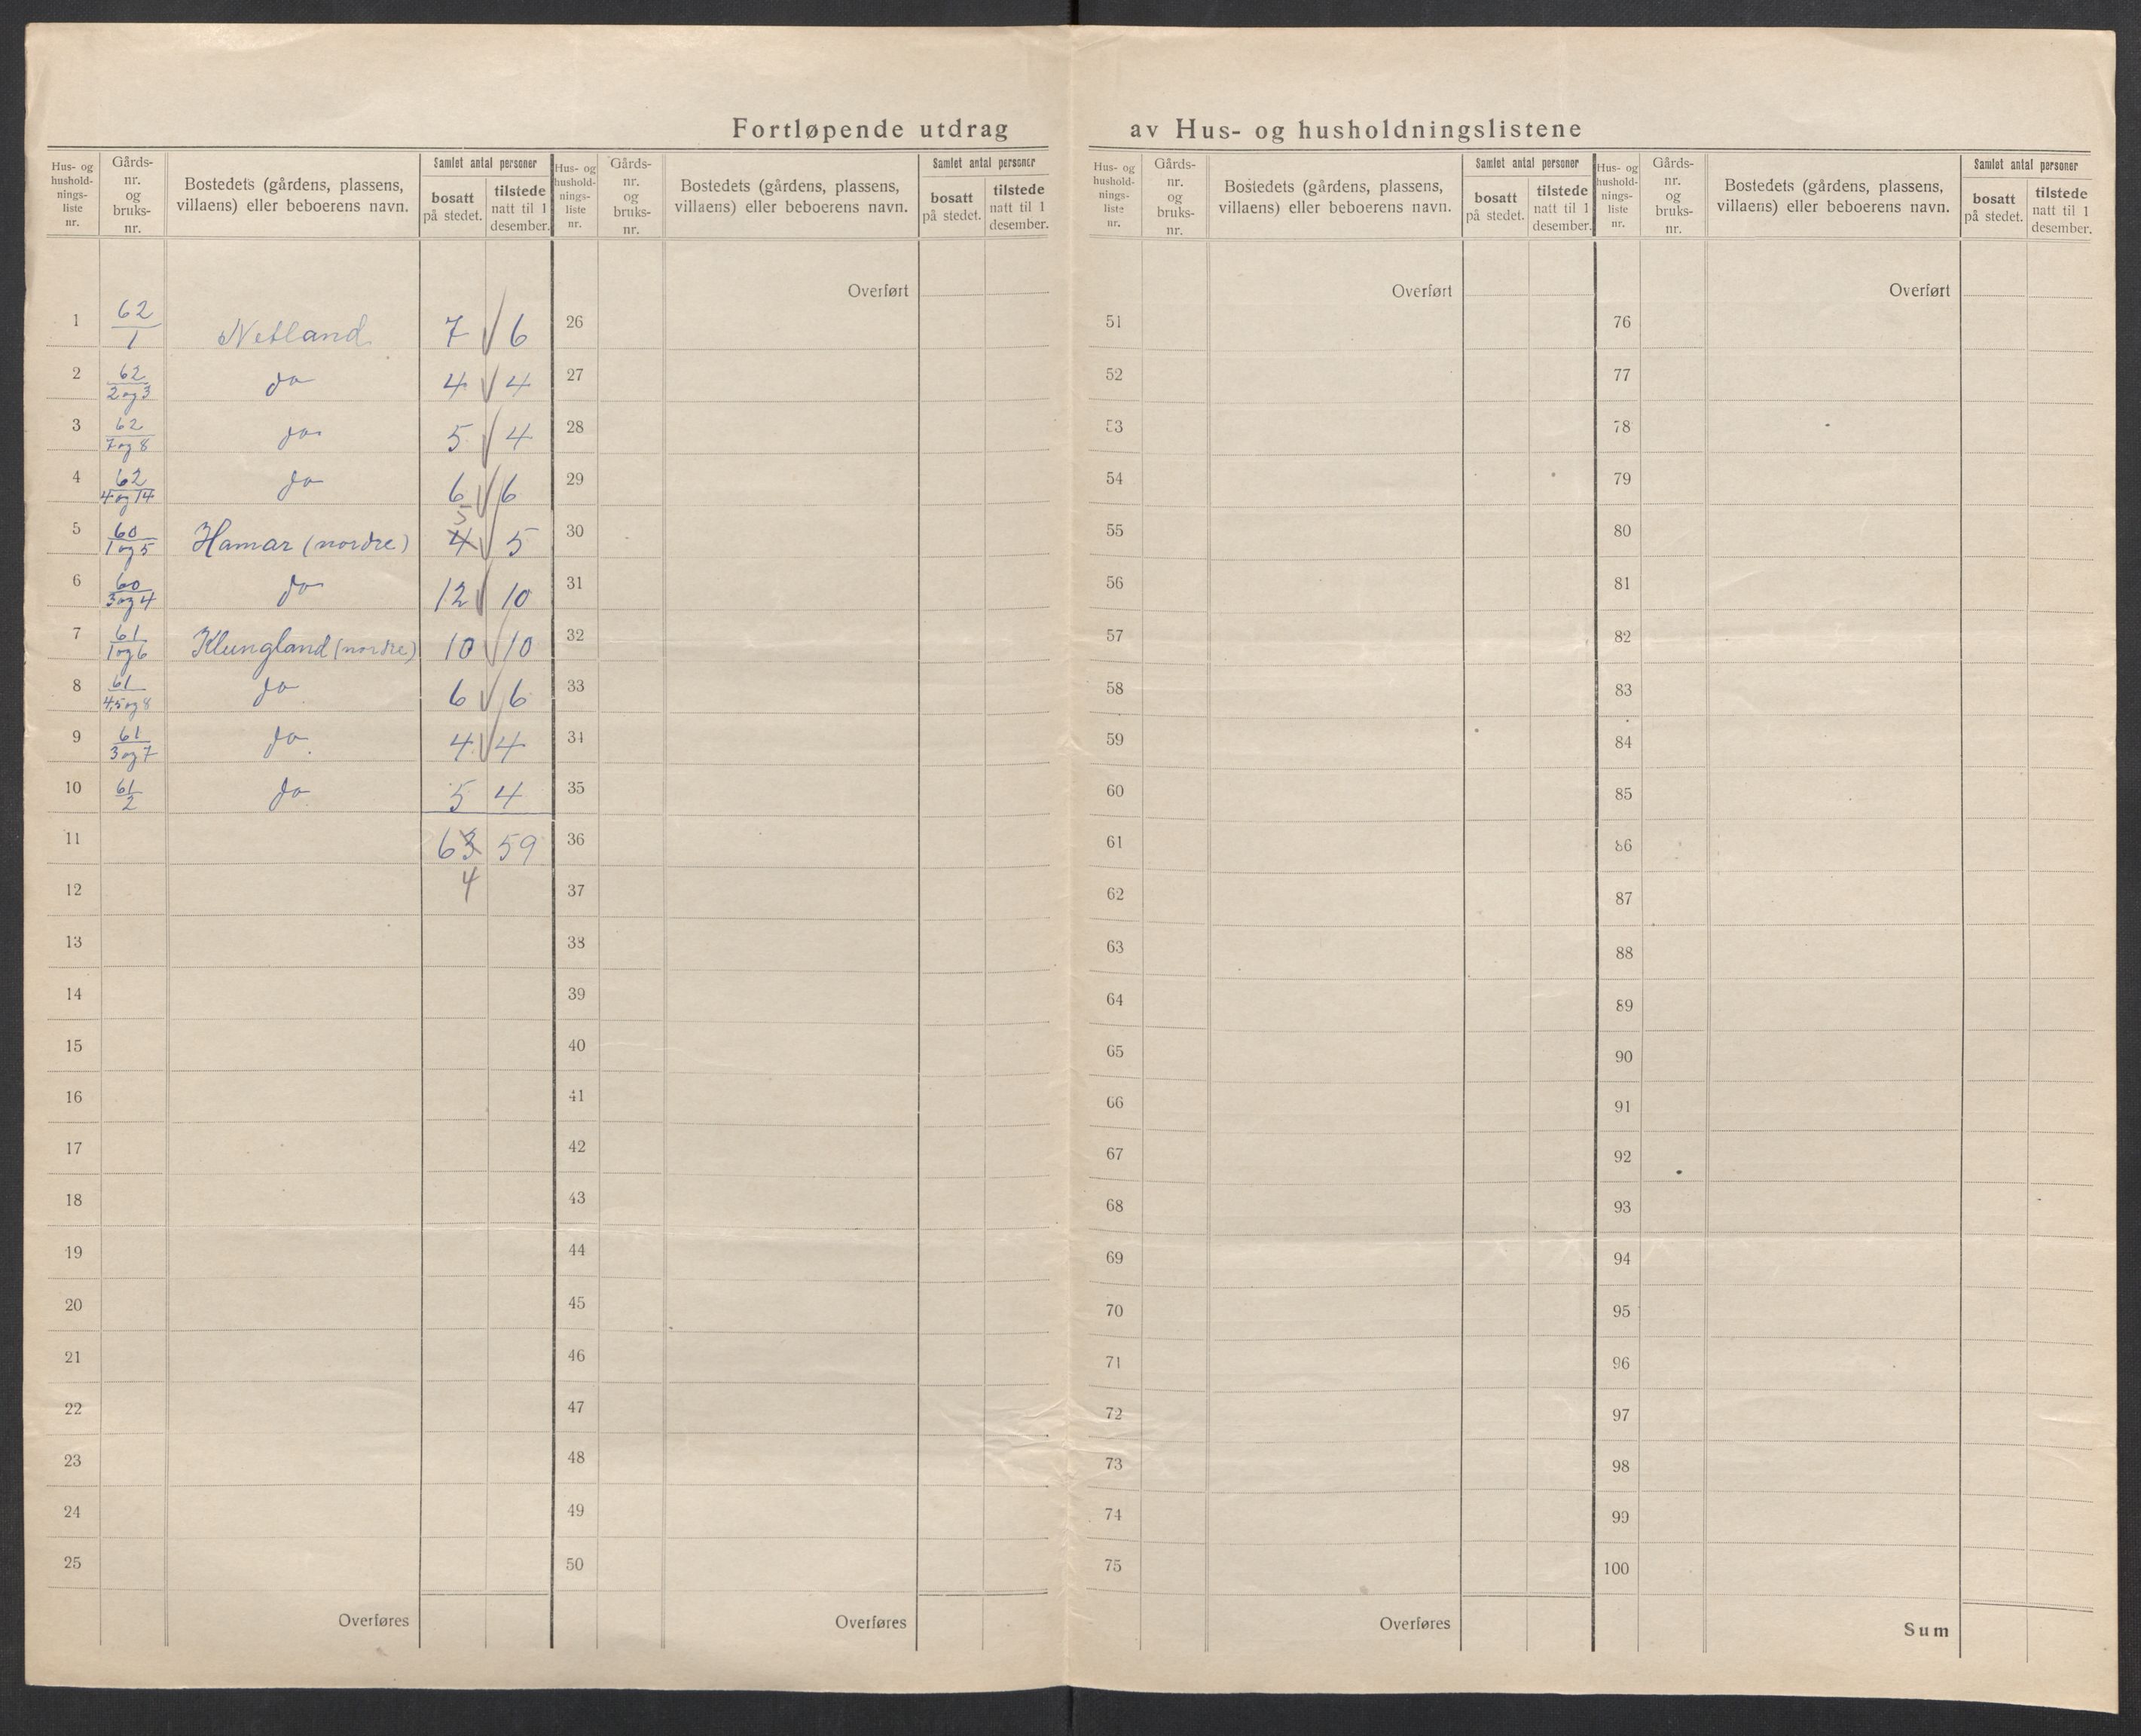 Fortløpende utdrag av Hus- og husholdningslistene
Hus- og hushold-nings-liste nr. Gårds-nr. og bruks-nr. Bostedets (gårdens, plassens, villaens) eller beboerens navn. Samlet antal personer bosatt på stedet. tilstede natt til 1 desember.
1 62/1 Netland 7 6
2 62/2 og 3 do 4 4
3 62/7 og 8 do 5 4
4 62/4 og 14 do 6 6
5 60/1 og 5 Hamar (nordre) 4 5 5
6 60/3 og 4 do 12 10
7 61/1 og 6 Klungland (nordre) 10 10
8 61/4,5 og 8 do 6 6
9 61/3 og 7 do 4 4
10 61/2 do 5 4
11 63 59
12 4
13
14
15
16
17
18
19
20
21
22
23
24
25
Overføres
Hus- og hushold-nings-liste nr. Gårds-nr. og bruks-nr. Bostedets (gårdens, plassens, villaens) eller beboerens navn. Samlet antal personer bosatt på stedet. tilstede natt til 1 desember.
Overført
26
27
28
29
30
31
32
33
34
35
36
37
38
39
40
41
42
43
44
45
46
47
48
49
50
Overføres
Hus- og hushold-nings-liste nr. Gårds-nr. og bruks-nr. Bostedets (gårdens, plassens, villaens) eller beboerens navn. Samlet antal personer bosatt på stedet. tilstede natt til 1 desember.
Overført
51
52
53
54
55
56
57
58
59
60
61
62
63
64
65
66
67
68
69
70
71
72
73
74
75
Overføres
Hus- og hushold-nings-liste nr. Gårds-nr. og bruks-nr. Bostedets (gårdens, plassens, villaens) eller beboerens navn. Samlet antal personer bosatt på stedet. tilstede natt til 1 desember.
Overført
76
77
78
79
80
81
82
83
84
85
86
87
88
89
90
91
92
93
94
95
96
97
98
99
100
Sum